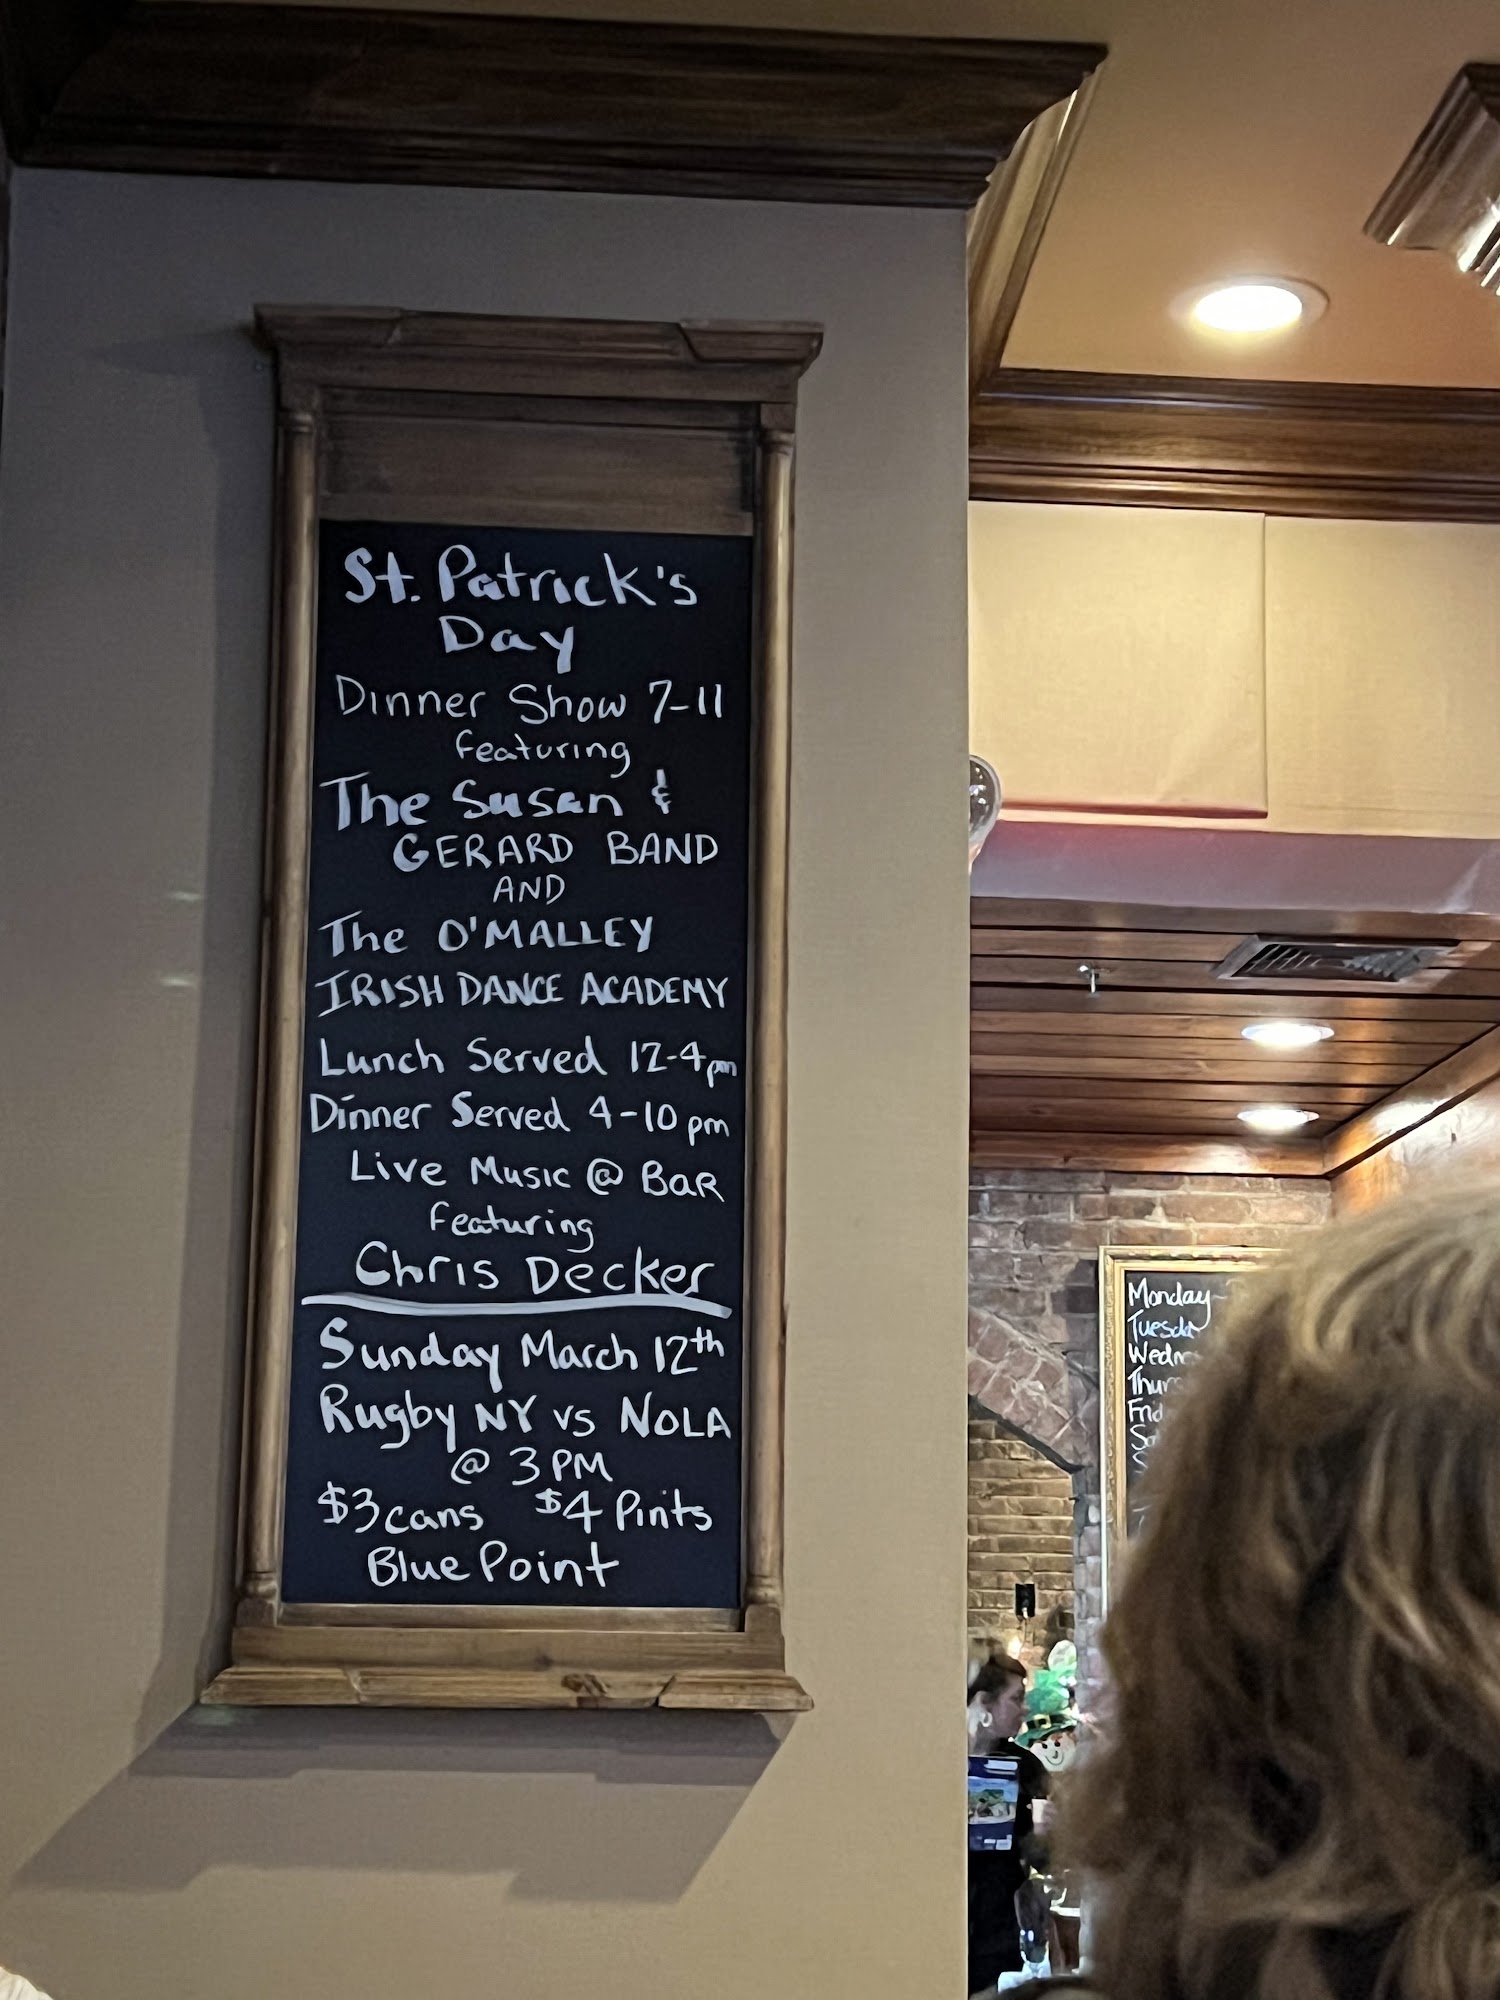 St. Patrick's
Day
Dinner Show 7-11
featuring
The Susan &
GERARD BAND
AND
The O'MALLEY
IRISH DANCE ACADEMY
Lunch Served 12-4pm
Dinner Served 4-10pm
Live Music @ Bar
featuring
Chris Decker
Sunday March 12th
Rugby NY vs NOLA
@ 3PM
$3 cans $4 Pints
Blue Point
Monday-